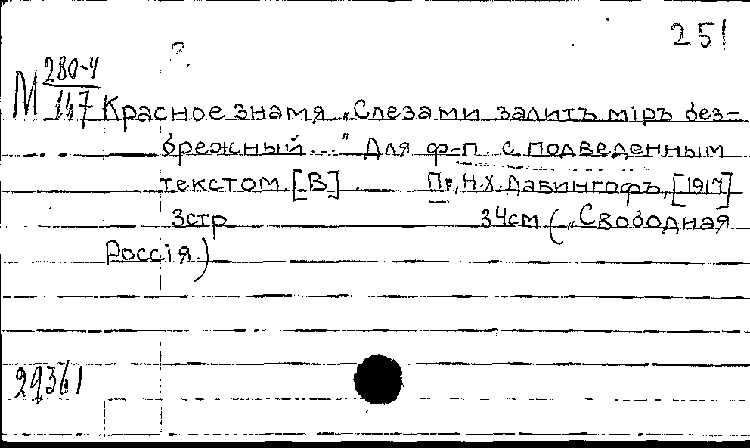 251
?
М 280-4
147 Красное знамя „Слезами залитъ мiръ без-
брежный..." Для ф-п с подведенным
текстом. [В] Пг, Н.Х. Давингофъ, [1917]
3стр 34см („Свободная
Россiя)
29361